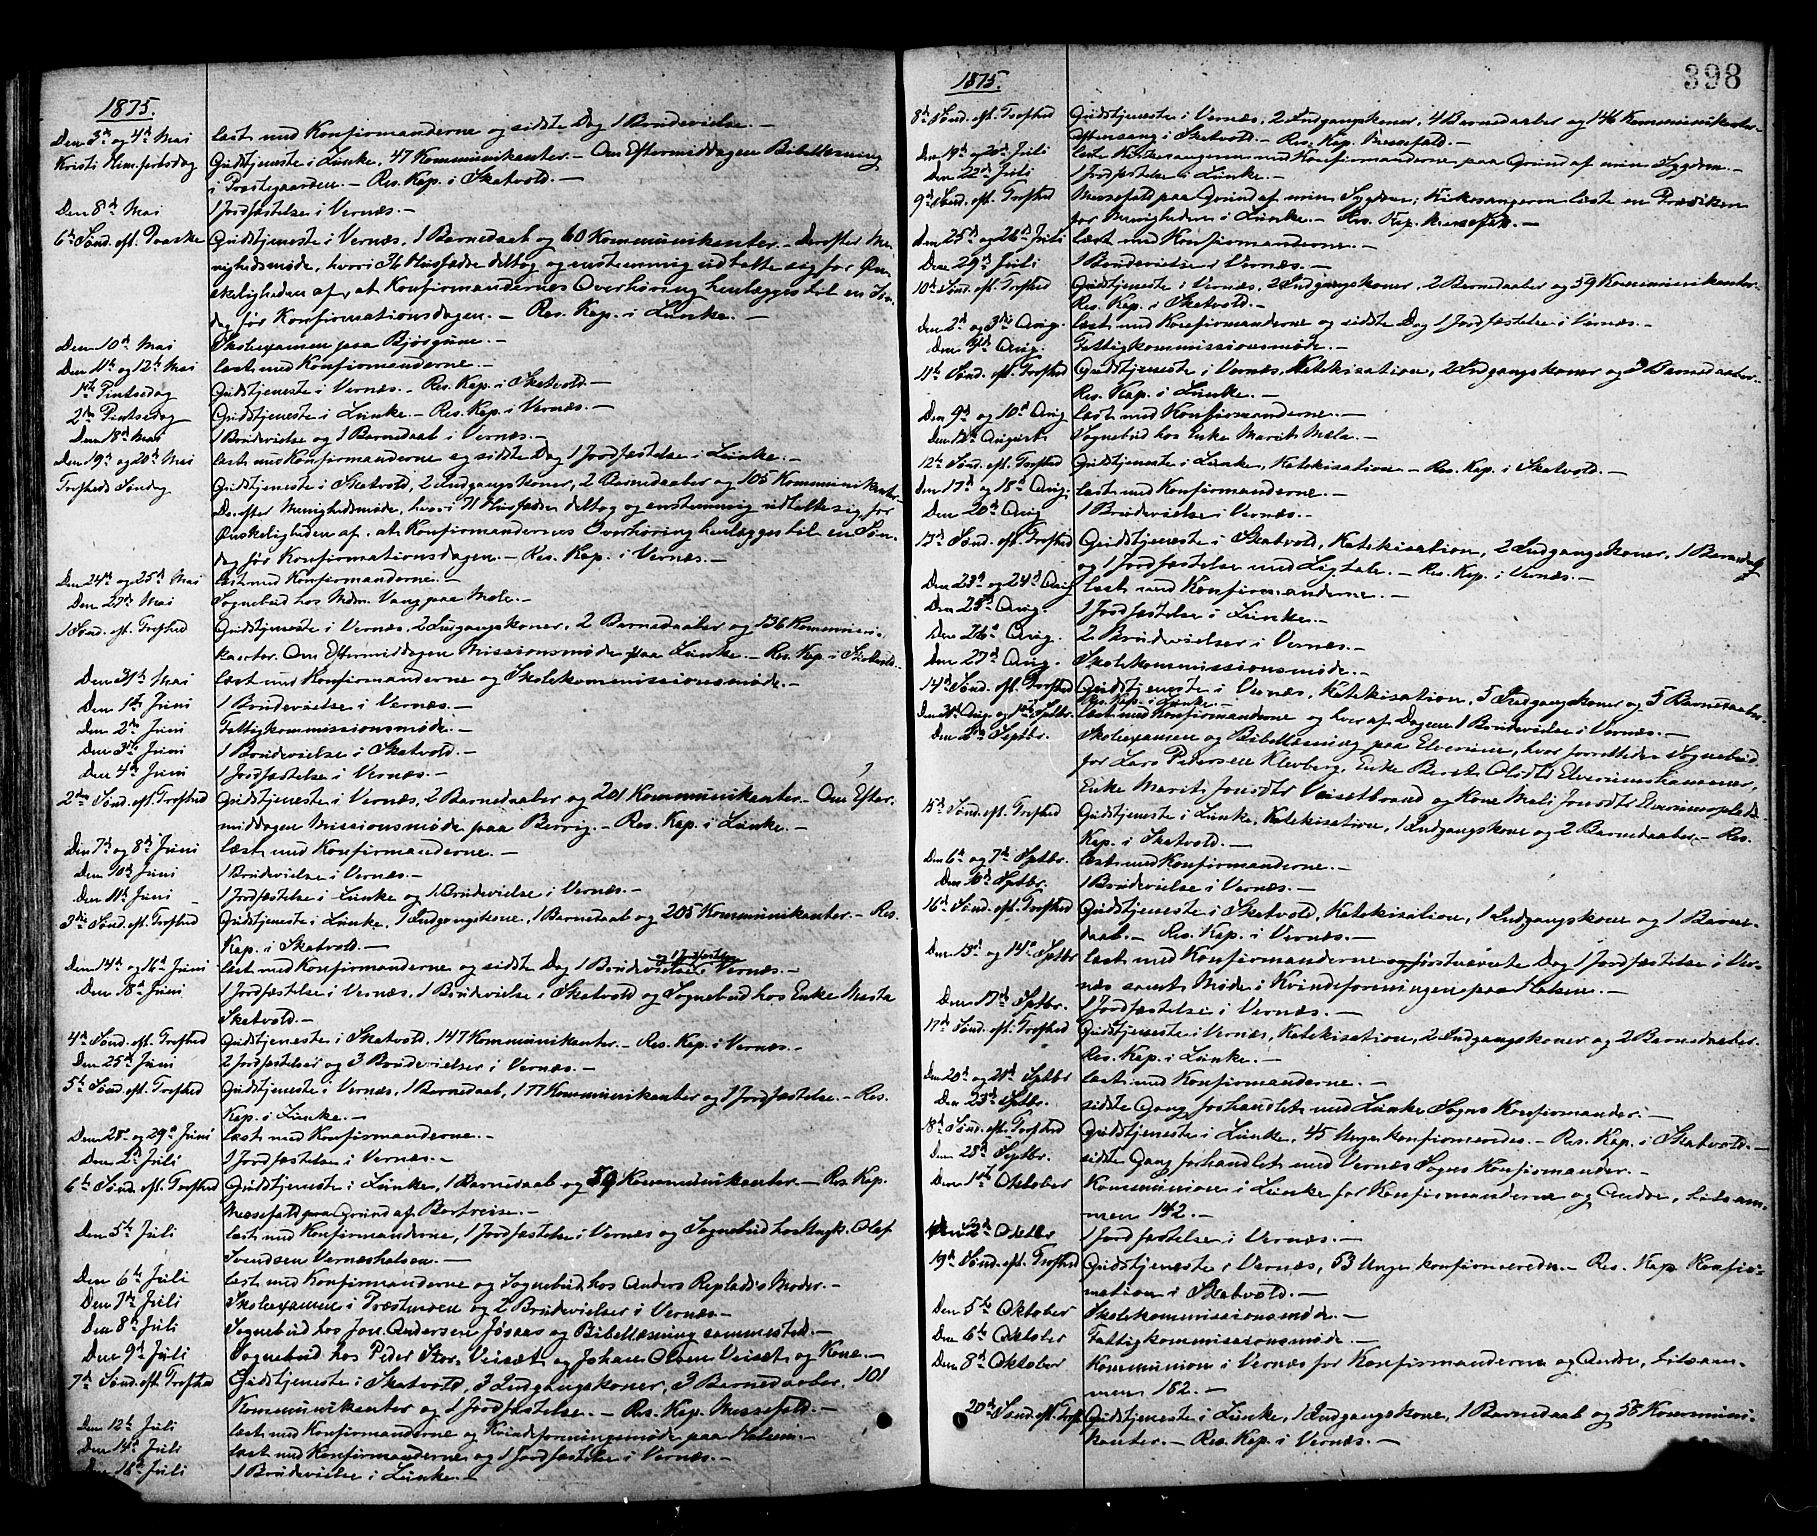 1875.
Den 3d og 4d Mai læst med Konfirmanderne og sidste Dag 1 Brudevielse. —
Kristi Himmelfartsdag Gudstjeneste i Lånke, 47 Kommunikanter. — Om Eftermiddagen Bibellæsning
i Præstegaarden. — Res. Kap. i Skatvold. —
Den 8d Mai 1 Jordfæstelse i Vernæs. —
6te Sønd. eft. Paaske Gudstjeneste i Vernæs, 1 Barnedaab og 60 Kommunikanter. — Derefter Me-
nighedsmøde, hvori 36 Husfædre deltog og enstemmig udtalte sig for Øn-
skeligheden af, at Konfirmandernes Overhøring henlægges til en Søn-
dag før Konfirmationsdagen. — Res. Kap. i Lånke. —
Den 10d Mai Skoleexamen paa —
Den 11te og 12te Mai læst med Konfirmanderne. —
1ste Pintsedag Gudstjeneste i Vernæs. — Res. Kap. i Skatvold. —
2den Pintsedag Gudstjeneste i Lånke. — Res. Kap. i Vernæs. —
Den 18d Mai 1 Brudevielse og 1 Barnedaab i Vernæs. —
Den 19d og 20d Mai læst med Konfirmanderne og sidste Dag 1 Jordfæstelse i Lånke. —
Trefheds Søndag Gudstjeneste i Skatvold, 2 Indgangskoner, 2 Barnedaaber og 105 Kommunikanter.
Derefter Menighedsmøde, hvori 71 Husfædre deltog og enstemmig udtalte sig for
Ønskeligheden af, at Konfirmandernes Overhøring henlægges til en Søn-
dag før Konfirmationsdagen. — Res. Kap. i Vernæs. —
Den 24d og 25d Mai læst med Konfirmanderne. —
Den 27d Mai Sognebud hos Mdm. Vang paa Mæle. —
1 Sønd. eft. Trefhed Gudstjeneste i Vernæs, 2 Indgangskoner, 2 Barnedaaber og 136 Kommuni-
kanter. Om Eftermiddagen Missionsmøde paa Lånke. — Res. Kap. i Skatvold. —
Den 31te Mai læst med Konfirmanderne og Skolekommissionsmøde. —
Den 1ste Juni 1 Brudevielse i Vernæs. —
Den 2den Juni Fattigkommissionsmøde. —
Den 3die Juni 1 Brudevielse i Skatvold. —
Den 4d Juni 1 Jordfæstelse i Vernæs. —
2den Sønd. eft. Trefhed Gudstjeneste i Vernæs, 2 Barnedaaber og 201 Kommunikanter. — Om Efter-
middagen Missionsmøde paa Berrig. — Res. Kap. i Lånke. —
Den 7d og 8d Juni læst med Konfirmanderne. —
Den 10d Juni 1 Brudevielse i Vernæs. —
Den 11te Juni 1 Jordfæstelse i Lånke og 1 Brudevielse i Vernæs. —
3die Sønd. eft. Trefhed Gudstjeneste i Lånke, 1 Indgangskone, 1 Barnedaab og 205 Kommunikanter. — Res.
Kap. i Skatvold. —
Den 14d og 16d Juni læst med Konfirmanderne og sidste Dag 1 Brudevielse i Vernæs. —
Den 18d Juni 1 Jordfæstelse i Vernæs, 1 Brudevielse i Skatvold og Sognebud hos Enke
Skatvold. —
4d Sønd. eft. Trefhed Gudstjeneste i Skatvold, 147 Kommunikanter. — Res. Kap. i Vernæs. —
Den 25d Juni 2 Jordfæstelser og 3 Brudevielser i Vernæs. —
5te Sønd. eft. Trefhed Gudstjeneste i Vernæs, 1 Barnedaab, 177 Kommunikanter og 1 Jordfæstelse. — Res.
Kap. i Lånke. —
Den 28d og 29d Juni læst med Konfirmanderne. —
Den 2d Juli 1 Jordfæstelse i Vernæs. —
6te Sønd. eft. Trefhed Gudstjeneste i Lånke, 1 Barnedaab og 59 Kommunikanter. — Res. Kap.
Messefald paa Grund af Bortreise. —
Den 5te Juli læst med Konfirmanderne, 1 Jordfæstelse i Vernæs og Sognebud hos Ungk. Olaf
Svendsen Vernæshalsen. —
Den 6te Juli læst med Konfirmanderne og Sognebud hos Anders Moder. —
Den 7de Juli Skoleexamen i Præstmoen og 2 Brudevielser i Vernæs. —
Den 8d Juli Sognebud hos Jon Andersen Jøsaas og Bibellæsning sammested. —
Den 9d Juli Sognebud hos Peder Stor-Veisæt og Johan Olsen Veisæt og Kone. —
7de Sønd. eft. Trefhed Gudstjeneste i Skatvold, 3 Indgangskoner, 3 Barnedaaber, 101
Kommunikanter og 1 Jordfæstelse. — Res. Kap. Messefald. —
Den 12te Juli læst med Konfirmanderne og Kvindeforeningsmøde paa Halsen. —
Den 14d Juli læst med Konfirmanderne og 1 Jordfæstelse i Vernæs. —
Den 16d Juli 1 Brudevielse i Lånke. —
398
1875.
8d Sønd. eft. Trefhed Gudstjeneste i Vernæs, 2 Indgangskoner, 4 Barnedaaber og 146 Kommunikanter.
Aftensang i Skatvold. — Res. Kap. Messefald. —
Den 19d og 20d Juli læste Kirkesangeren med Konfirmanderne paa Grund af min Sygdom. —
Den 22d Juli 1 Jordfæstelse i Lånke. —
9d Sønd. eft. Trefhed Messefald paa Grund af min Sygdom; Kirkesangeren læste en Prædiken
for Menigheden i Lånke. — Res. Kap. Messefald. —
Den 25d og 26d Juli læst med Konfirmanderne. —
Den 29d Juli 1 Brudevielse i Vernæs. —
10d Sønd. eft. Trefhed Gudstjeneste i Vernæs, 2 Indgangskoner, 2 Barnedaaber og 59 Kommunikanter.
Res. Kap. i Skatvold. —
Den 2d og 3die Aug. læst med Konfirmanderne og sidste Dag 1 Jordfæstelse i Vernæs. —
Den Aug. Fattigkommissionsmøde. —
11te Sønd. eft. Trefhed Gudstjeneste i Vernæs, Katekisation, 2 Indgangskoner og 3 Barnedaaber. —
Res. Kap. i Lånke. —
Den 9d og 10d Aug læst med Konfirmanderne. —
Den 12te August Sognebud hos Enke Marit Mæle. —
12te Sønd. eft. Trefhed Gudstjeneste i Lånke, Katekisation. — Res. Kap. i Skatvold. —
Den 17d og 18d Aug. læst med Konfirmanderne. —
Den 20d Aug 1 Brudevielse i Vernæs. —
13d Sønd. eft. Trefhed Gudstjeneste i Skatvold, Katekisation, 2 Indgangskoner, 1 Barnedaab
og 1 Jordfæstelse med Ligtale. — Res. Kap. i Vernæs. —
Den 23d og 24d Aug læst med Konfirmanderne. —
Den 25d Aug. 1 Jordfæstelse i Lånke. —
Den 26d Aug. 2 Brudevielser i Vernæs. —
Den 27d Aug. Skolekommissionsmøde. —
14d Sønd. eft. Trefhed Gudstjeneste i Vernæs, Katekisation, 5 Indgangskoner og 5 Barnedaaber.
Res. Kap. i Lånke. —
Den 31te Aug. og 1ste Septbr. læst med Konfirmanderne og hver af Dagene 1 Brudevielse i Vernæs. —
Den 2den Septbr. Skoleexamen og Bibellæsning paa Elverum, hvor forrettedes Sognebud
for Lars Pedersen Klevberg, Enke Beret Olsdtr
Enke Marit Jonsdtr og Kone Mali Jonsdtr
15d Sønd. eft. Trefhed Gudstjeneste i Lånke, Katekisation, 1 Indgangskone og 2 Barnedaaber. — Res.
Kap. i Skatvold. —
Den 6d og 7d Septbr. læst med Konfirmanderne. —
Den 10d Septbr. 1 Brudevielse i Vernæs. —
16d Sønd. eft. Trefhed Gudstjeneste i Skatvold, Katekisation, 1 Indgangskone og 1 Barne-
daab. — Res. Kap. i Vernæs. —
Den 13d og 14d Septbr læst med Konfirmanderne og førstnævnte Dag 1 Jordfæstelse i Ver-
næs samt Møde i Kvindeforeningen paa Halsen. —
Den 17d Septbr. 1 Jordfæstelse i Vernæs. —
17d Sønd. eft. Trefhed Gudstjeneste i Vernæs, Katekisation, 2 Indgangskoner og 2 Barnedaaber.
Res. Kap. i Lånke. —
Den 20d og 21d Septbr læst med Konfirmanderne. —
Den 23d Septbr. sidste Gang forhandlet med Lånke Sogns Konfirmander. —
18d Sønd. eft. Trefhed Gudstjeneste i Lånke, 45 Unge konfirmeredes. — Res. Kap. i Skatvold. —
Den 28d Septbr. sidste Gang forhandlet med Vernæs Sogns Konfirmander. —
Den 1ste Oktober Kommunion i Lånke for Konfirmanderne og Andre, tilsam-
men 142. —
Den 2d Oktbr 1 Jordfæstelse i Vernæs. —
19d Sønd. eft. Trefhed Gudstjeneste i Vernæs, 53 Unge konfirmeredes. — Res. Kap. Konfir-
mation i Skatvold. —
Den 5te Oktober Skolekommissionsmøde. —
Den 6te Oktober Fattigkommissionsmøde. —
Den 8d Oktober Kommunion i Vernæs for Konfirmanderne og Andre, tilsam-
men 182. —
20d Sønd. eft. Trefh. Gudstjeneste i Lånke, 1 Indgangskone, 1 Barnedaab og 58 Kommuni-
kanter. — Res. Kap. i Vernæs. —